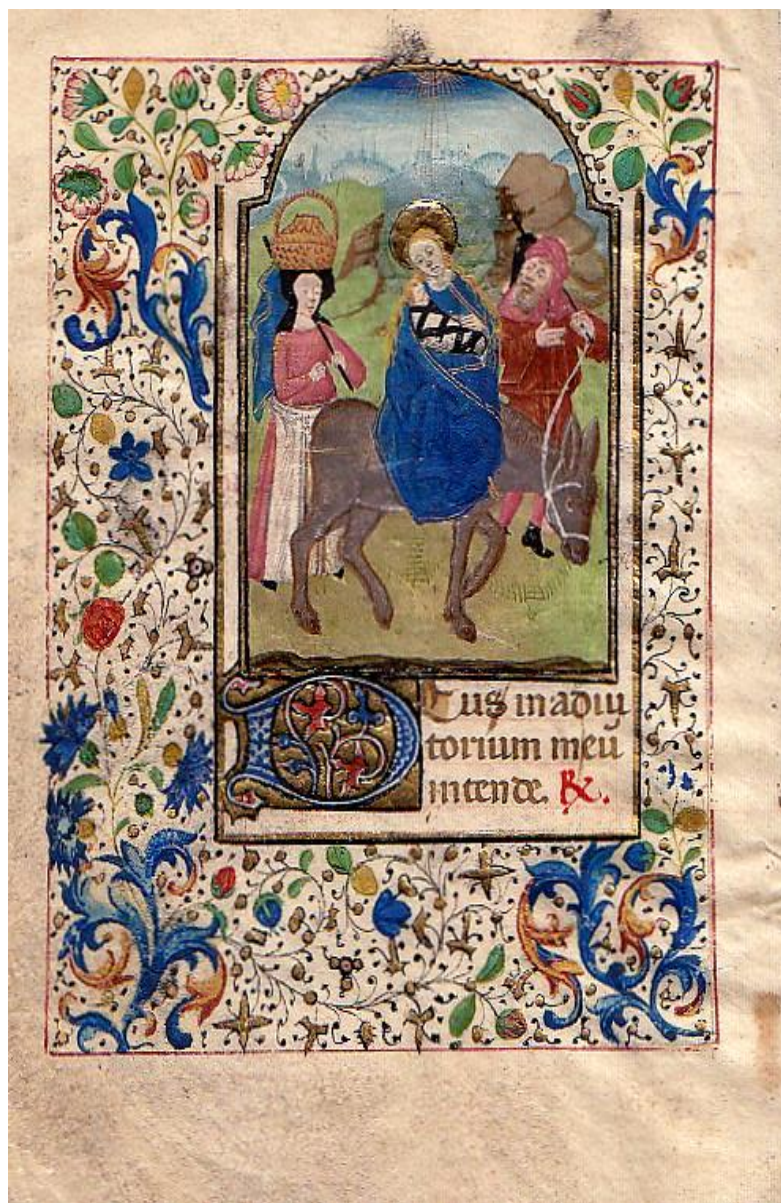 Deus in adiu
torium meū
intende. R̷.